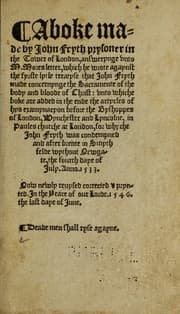 A boke ma-
de by John Fryth prysoner in
the Tower of London, answerynge vnto
M. Mores letter, which he wrote agaynst
the fyrste lytle treatyse that John Fryth
made concernynge the Sacramente of the
body and bloode of Christ: vnto which
boke are added in the ende the artycles of
hys examynacyon before the Bysshoppes
of London, Wynchester and Lyncolne, in
Paules churche at London, for which
John Fryth was condempned
and after brente in Smyth
felde wythout Newga-
te, the fourth daye of
July. Anno. 1533.
Now newly reuysed corrected & pryn-
ted. In the Yeare of our Lorde. 1546.
the last daye of June.
Deade men shall ryse agayne.